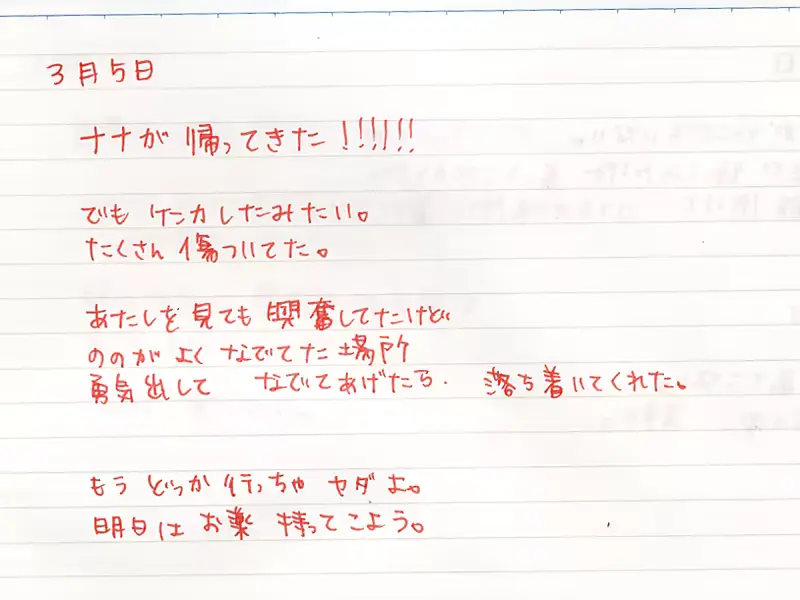 3月5日
ナナが帰ってきた!!!!!!
でもケンカしたみたい。
たくさん傷ついてた。
あたしを見ても興奮してたけど
ののがよくなでてた場所
勇気出して なでてあげたら. 落ち着いてくれた。
もうどっか行っちゃヤダよ。
明日はお薬持ってこよう。